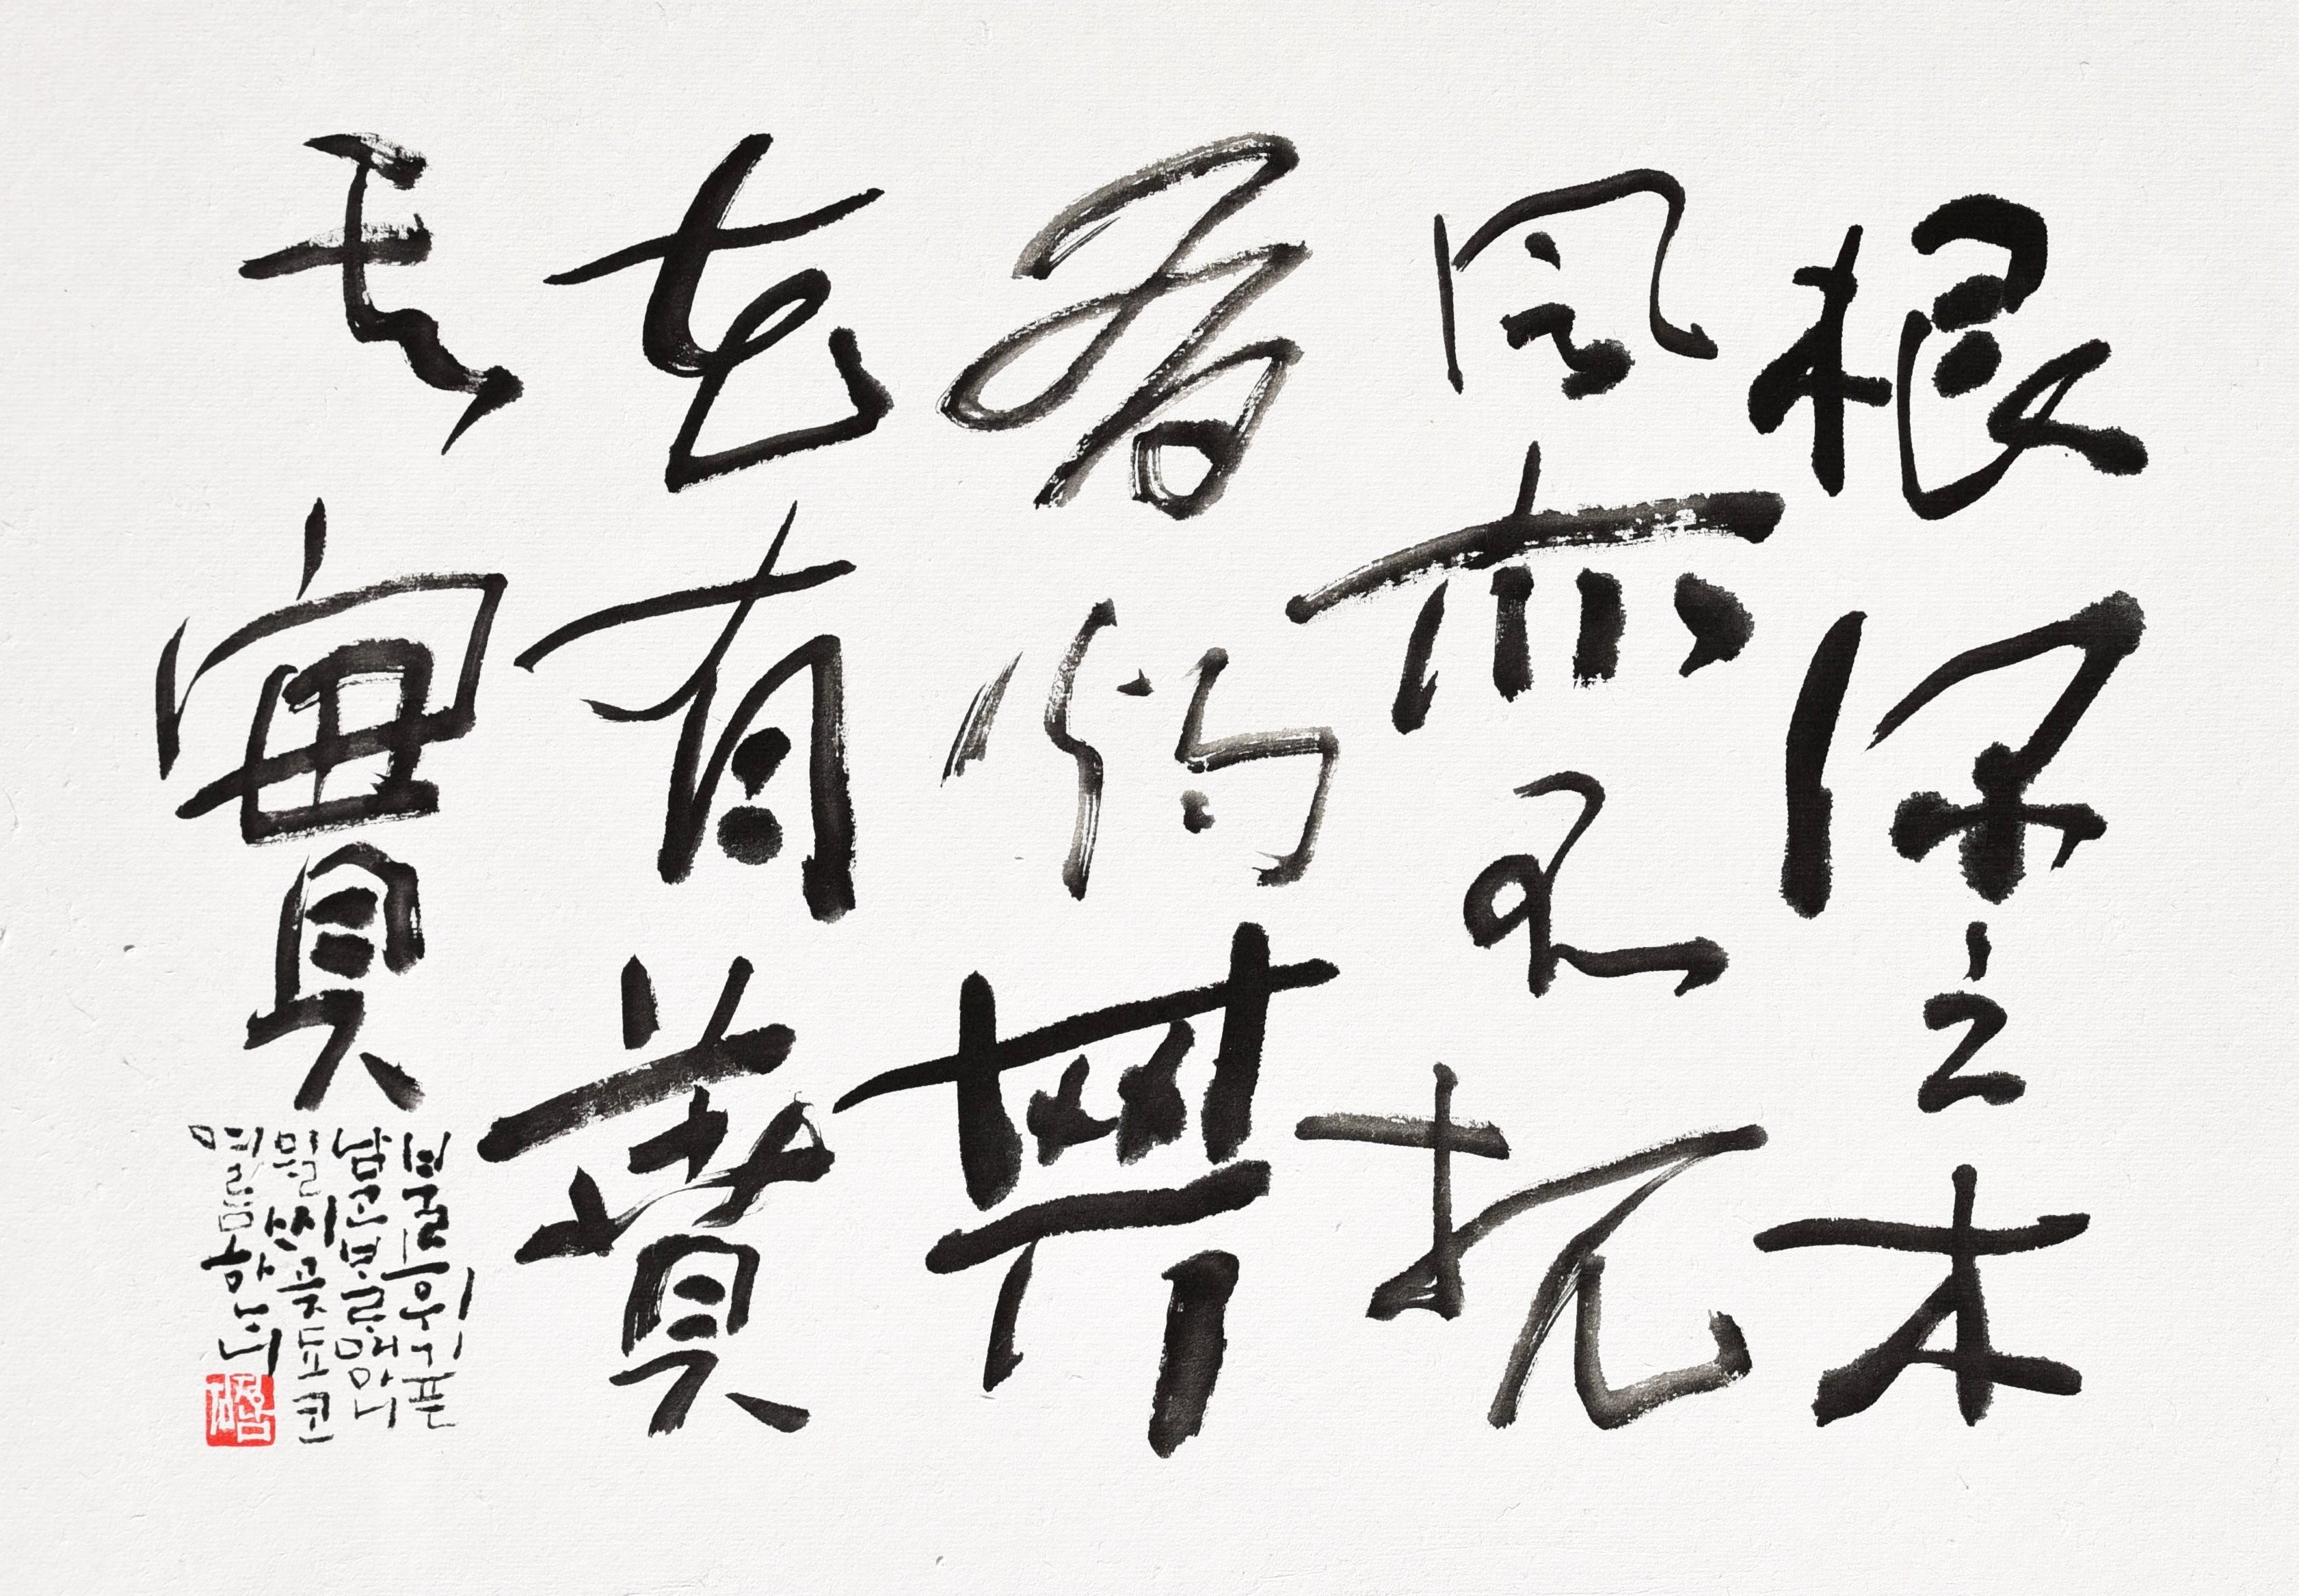 根深之木
風亦不扤
有灼其
華有蕡
其實
불휘 기픈
남ᄀᆞᆫ ᄇᆞᄅᆞ매 아니
뮐ᄊᆡ 곶 됴코
여름 하ᄂᆞ니